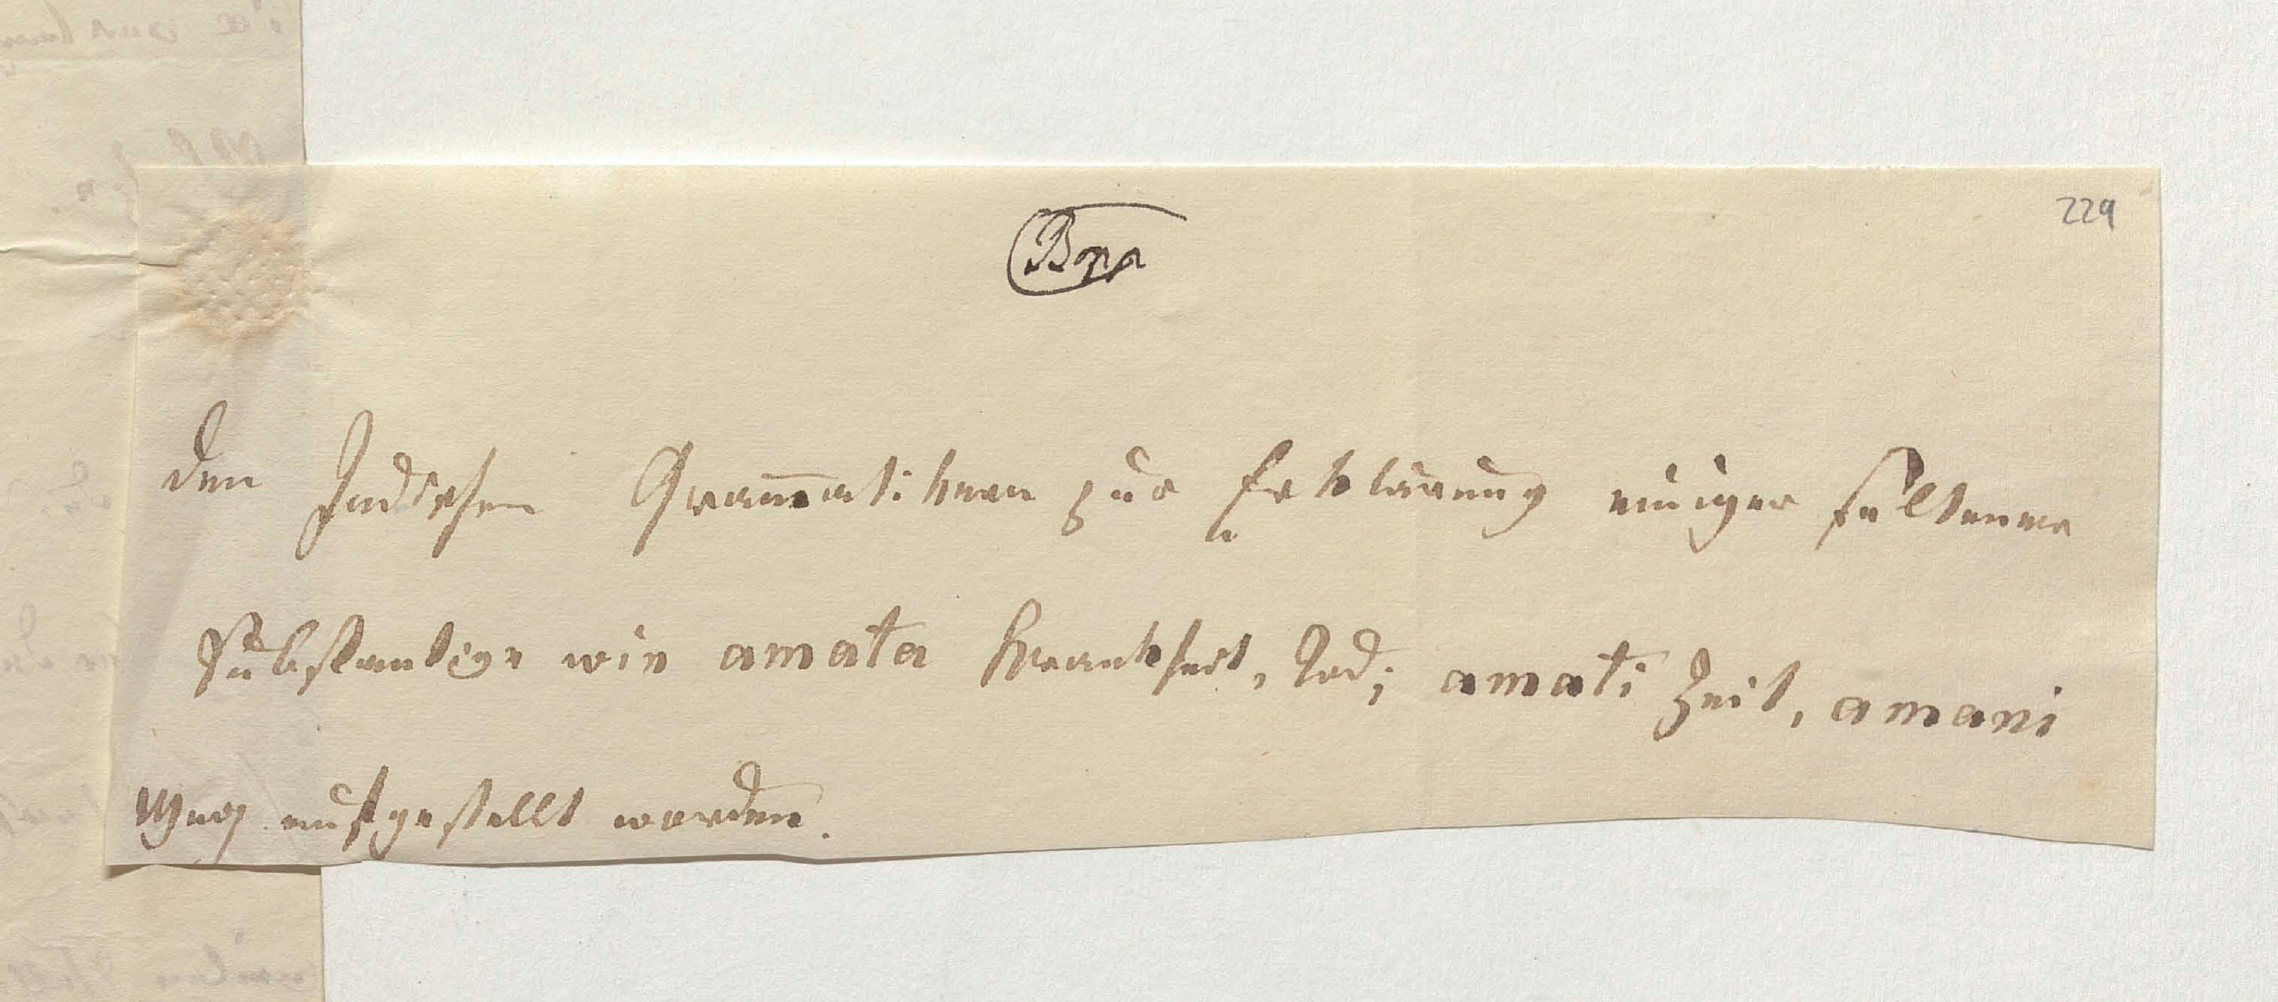 229
Bopp
den Indischen Gram̅atikern zur Erklärung einiger seltener
Substantive wie amata Krankheit, Tod; amati Zeit, amani
Weg aufgestellt worden.